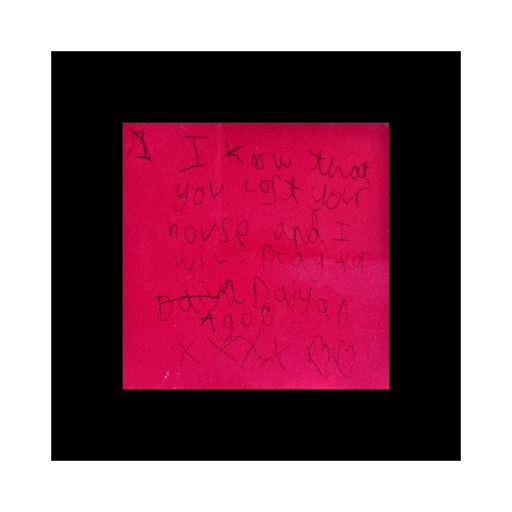 I know that
you Lost your
house and I
will pray for
Dayan
Age 6
xxxx